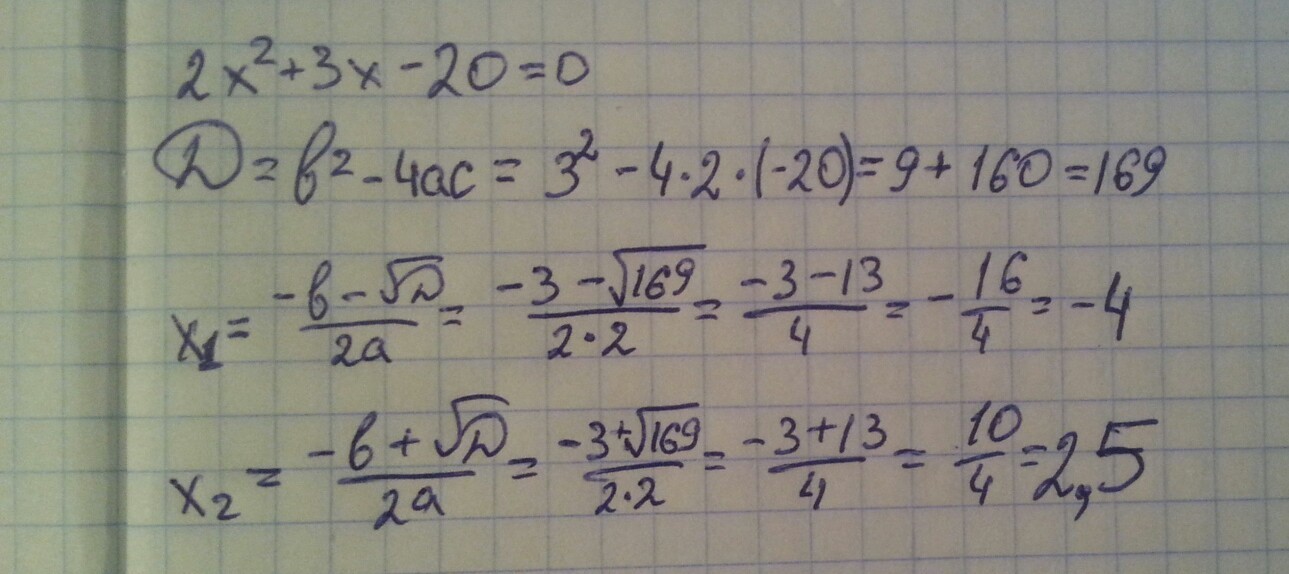 2x²+3x-20=0
D=b²-4ac=3²-4·2·(-20)=9+160=169
x₁=(-b-√D)/(2a)=(-3-√169)/(2·2)=(-3-13)/4=-16/4=-4
x₂=(-b+√D)/(2a)=(-3+√169)/(2·2)=(-3+13)/4=10/4=2,5